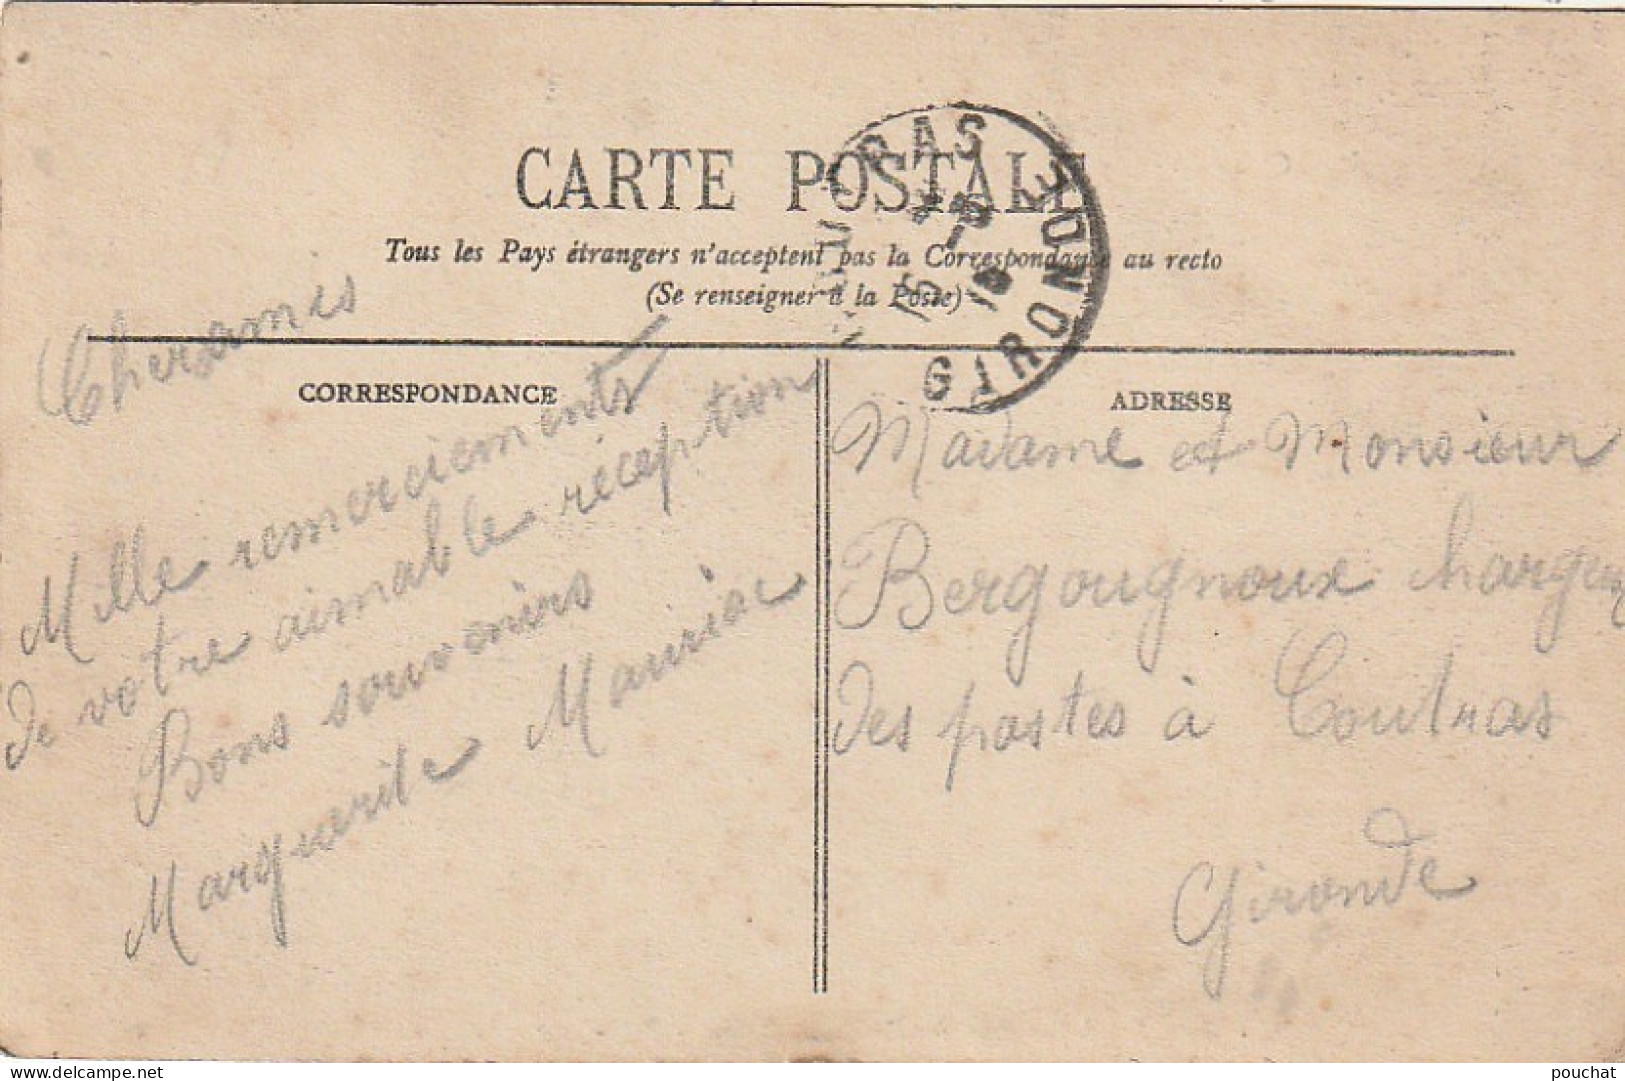 CARTE POSTALE
Tous les Pays étrangers n'acceptent pas la Correspondance au recto
(Se renseigner à la Poste)
RAS
GIRONDE
CORRESPONDANCE
Cher amis
Mille remerciements
de votre aimable réception
Bons souvenirs
Marguerite Mauriac
ADRESSE
Madame et Monsieur
Bergougnoux
des postes à Coutras
Gironde
pouchat